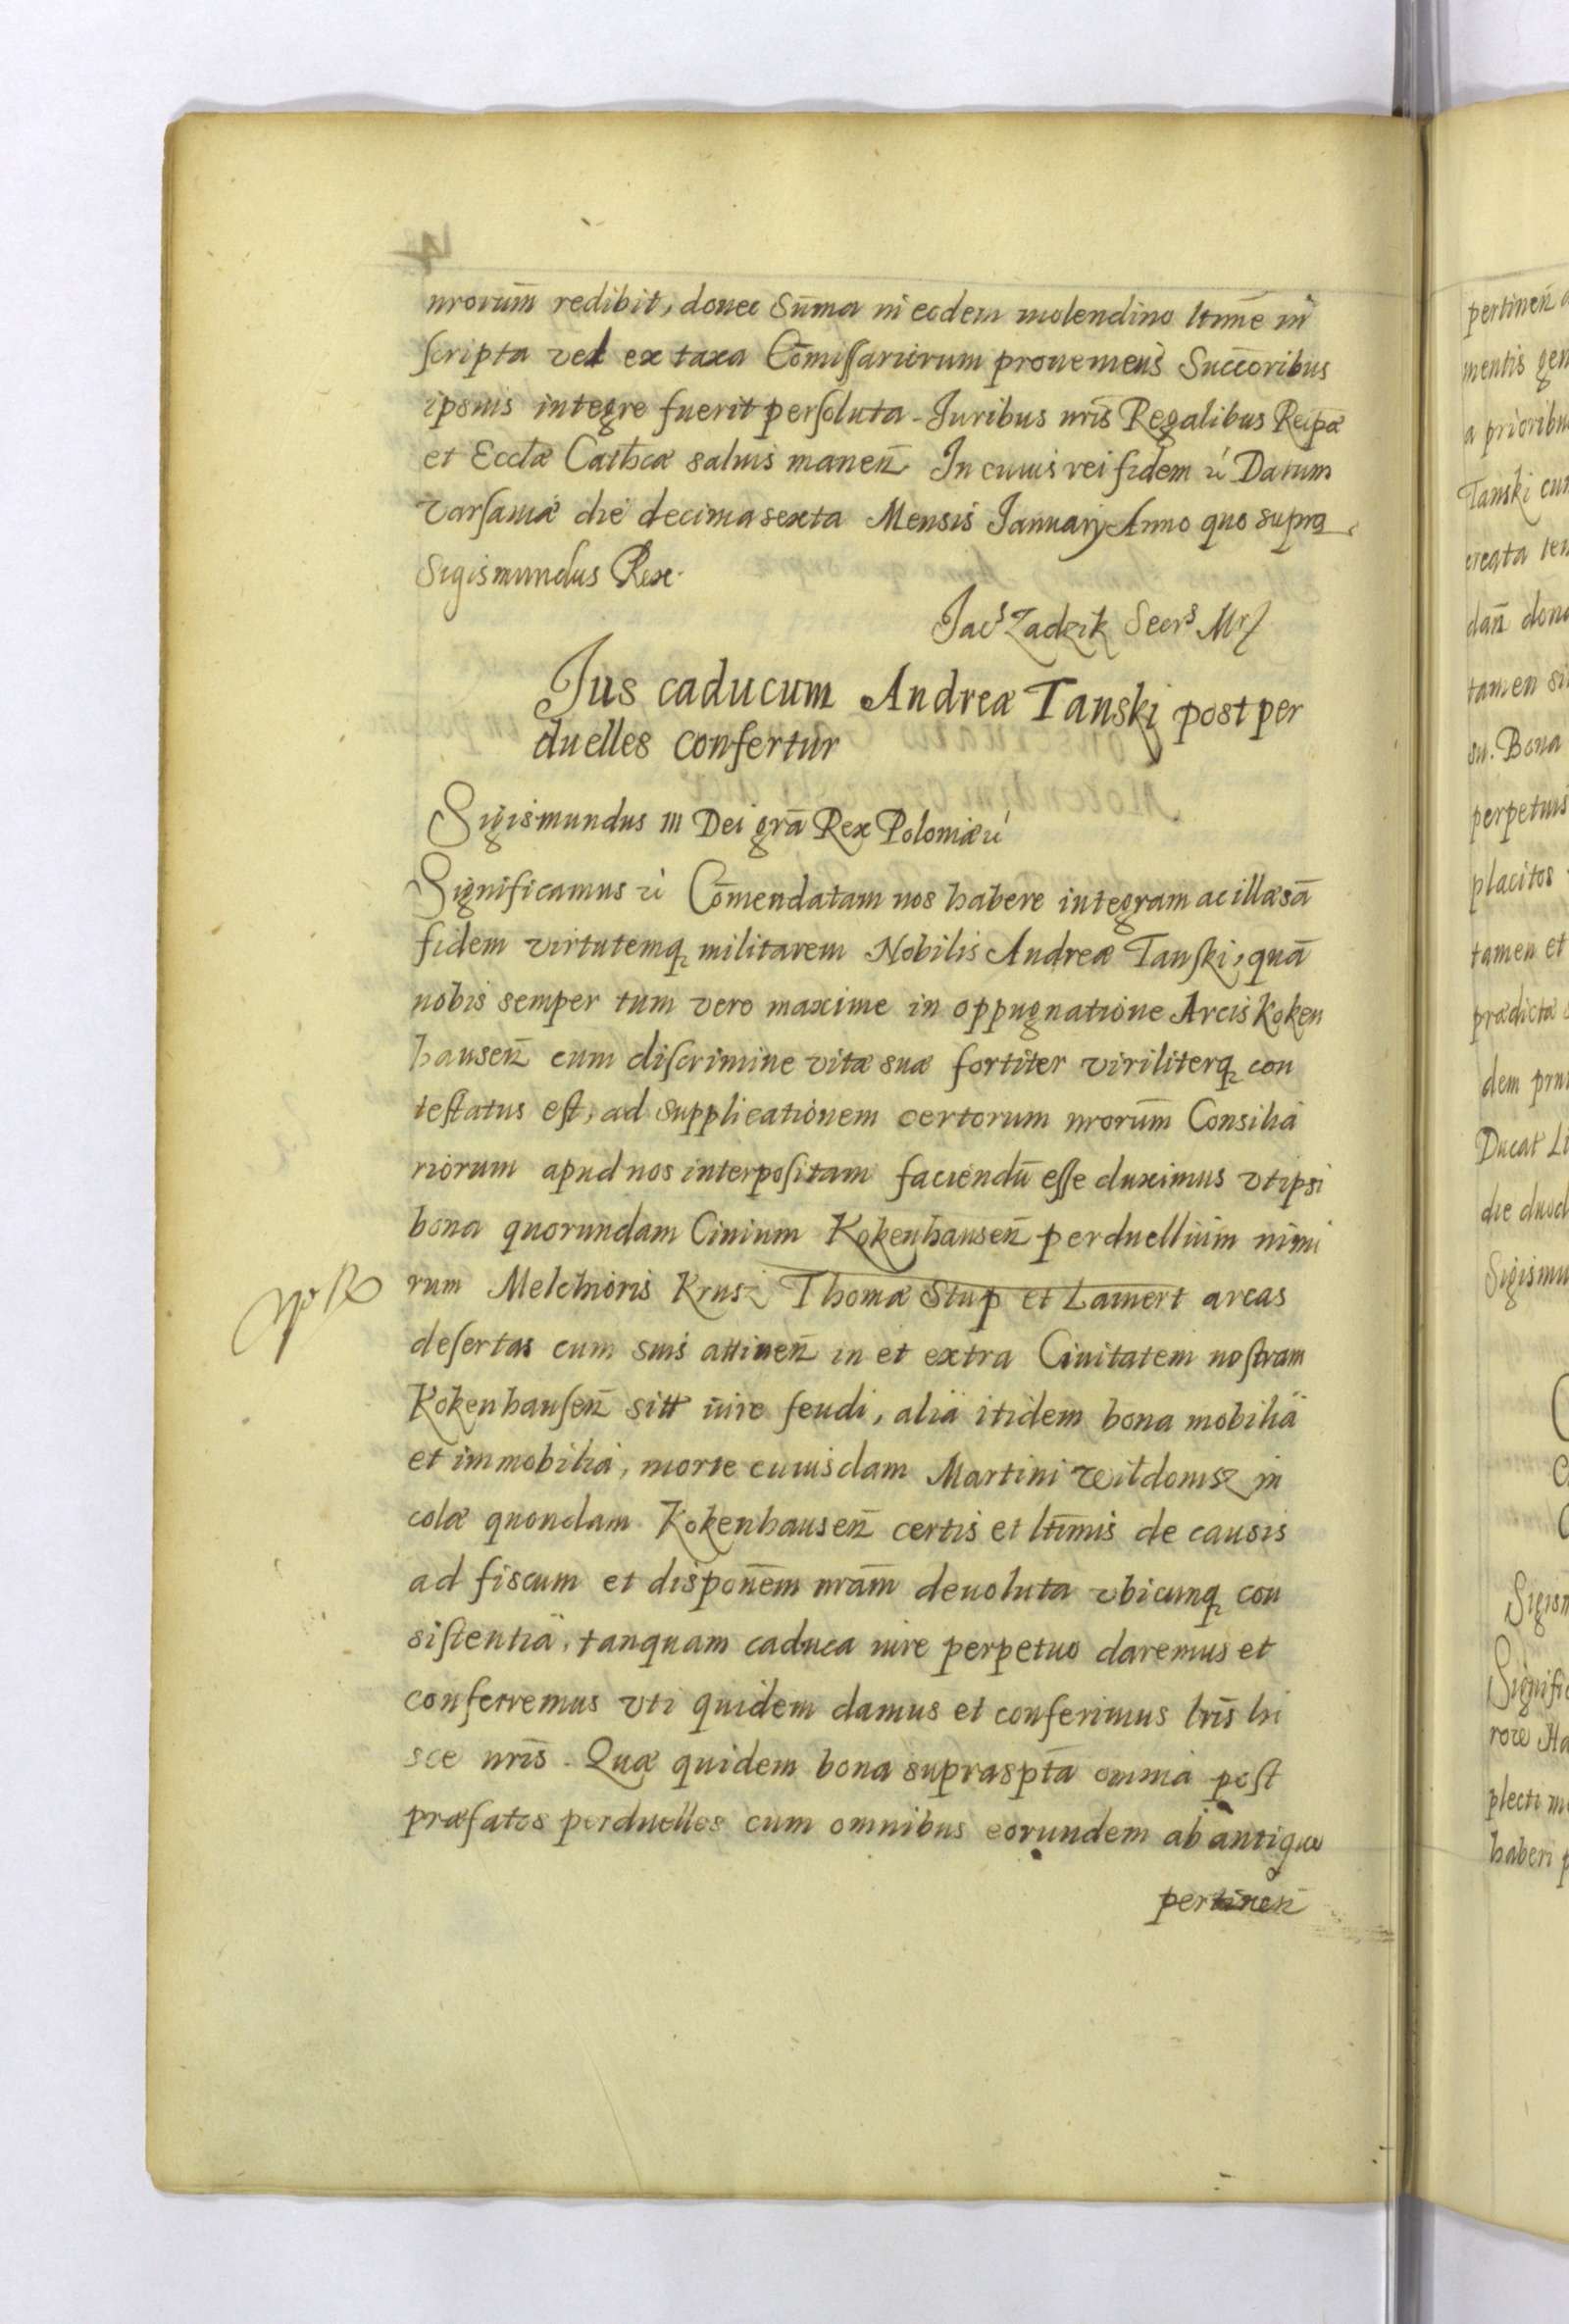 nrorum̄ redibit, donec Sum̄a in eodem molendino ltimē in
scripta vel ex taxa Com̄issariorum proveniens Succoribus
ipsius integre fuerit persoluta. Iuribus nris̄ Regalibus Reipæ
et Ecclæ Cathcæ salvis manen̄. In cuius rei fidem &c Datum
Varsaviæ die decima sexta Mensis Ianuarij Anno quo supra.
Sigismundus Rex.
Iacs Zadzik Secrs Mr
Ius caducum Andreæ Tanski post per
duelles confertur
Sigismundus III Dei grā Rex Poloniæ &c
Significamus &c Com̄endatam nos habere integram ac illæsā
fidem virtutemq militarem Nobilis Andreæ Tanski, quā
nobis semper tum vero maxime in oppugnatione Arcis Koken
hausen̄ cum discrimine vitæ suæ fortiter viriliterq con
testatus est, ad supplicationem certorum nrorum̄ Consilia
riorum apud nos interpositam faciendū esse duximus vt ipsi
bona quorundam Civium Kokenhausen̄ perduellium nimi
rum Melchioris Krusz Thomæ Stup et Lamert areas
desertas cum suis attinen̄ in et extra Civitatem nostram
Kokenhausen̄ sitt iure feudi, alia itidem bona mobilia
et immobilia, morte cuiusdam Martini Wildomsz in
colæ quondam Kokenhausen̄ certis et ltim̄is de causis
ad fiscum et dispon̄em nram̄ devoluta vbicunq con
sistentia, tanquam caduca iure perpetuo daremus et
conferremus vti quidem damus et conferimus lris̄ hi
sce nris̄. Quæ quidem bona suprasptā omnia post
præfatos perduelles cum omnibus eorundem ab antiquo
pertinen̄
pertinen̄
mentis gen
a prioribu
Tanski cum
creata
dan̄ dona
tamen si
su. Bona
perpetuis
placitos
tamen et
prædicta
dem
Ducat Li
die duod
Sigismu
Sigism
Signific
plecti
haberi p